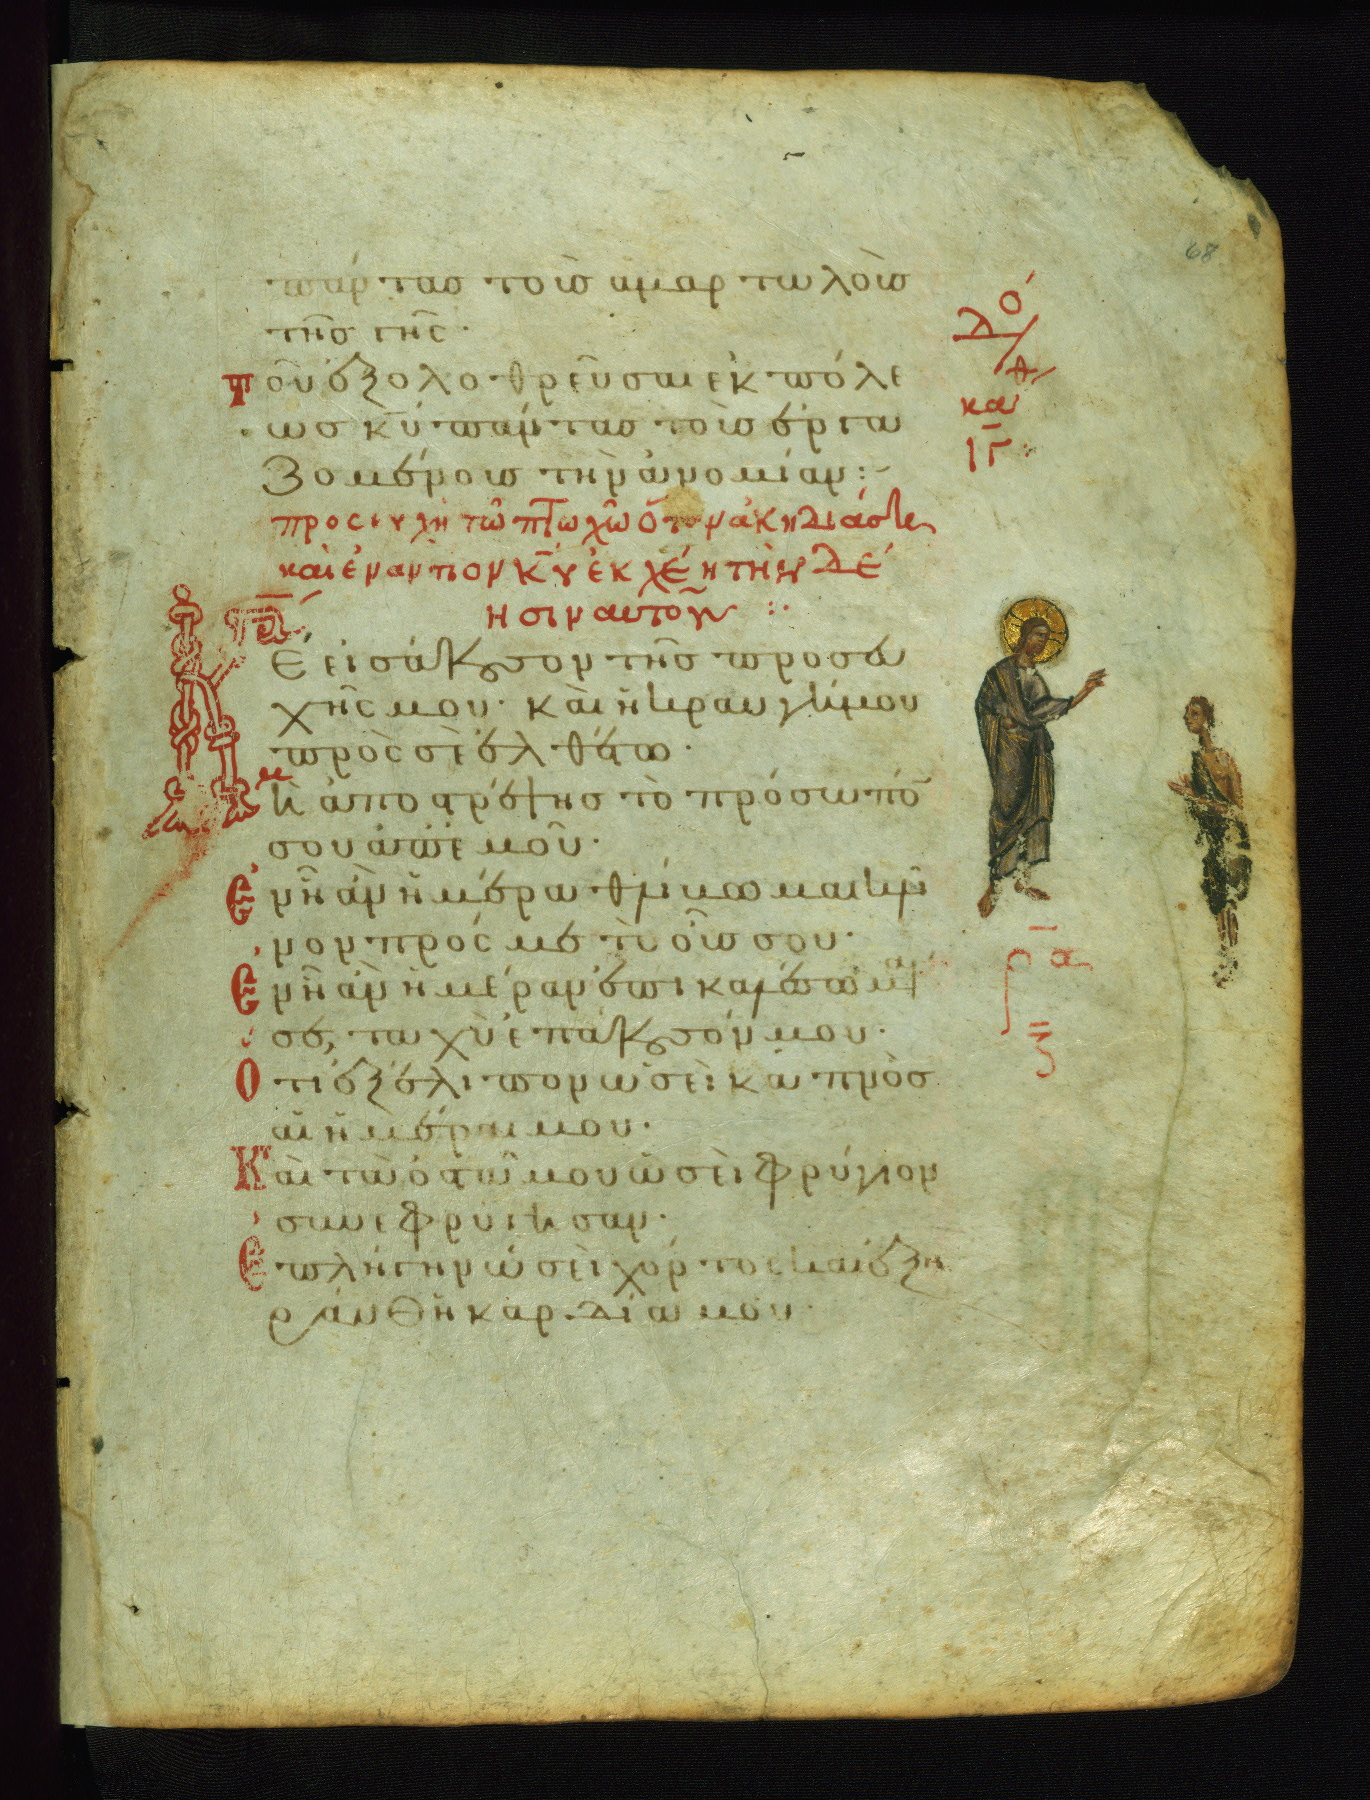 68
πάντας τοὺς ἁμαρτωλοὺς
τῆς γῆς·
Τοῦ ἐξολοθρεῦσαι ἐκ πόλε
ως κυ πάντας τοὺς ἐργα
ζομένους τὴν ἀνομίαν:
προσευχὴ τῶ πτωχῶ ὅταν ἀκηδιάση
καὶ ἐναντίον κυ ἐκχέη τὴν δέ
ησιν αυτοῦ :·
ρα
Κε εἰσάκουσον τῆς προσευ
χῆς μου· καὶ ἡ κραυγή μου
πρὸς σὲ ἐλθέτω·
Μὴ ἀποστρέψης τὸ πρόσωπό
σου ἀπ ἐμοῦ·
Εν ἧ ἂν ἡμέρα θλίβωμαι κλῖ
νον πρός με τὸ οὖς σου·
Εν ἧ ἂν ἡμέρα ἐπικαλέσωμαί
σε, ταχὺ ἐπάκουσόν μου·
Οτι ἐξέλιπον ὡσεὶ καπνὸς
αἱ ἡμέραι μου·
Καὶ τὰ ὀστᾶ μου ὡσεὶ φρύγιον
συνεφρύγησαν·
Επλήγην ὡσεὶ χόρτος καὶ ἐξη
ράνθη ἡ καρδία μου·